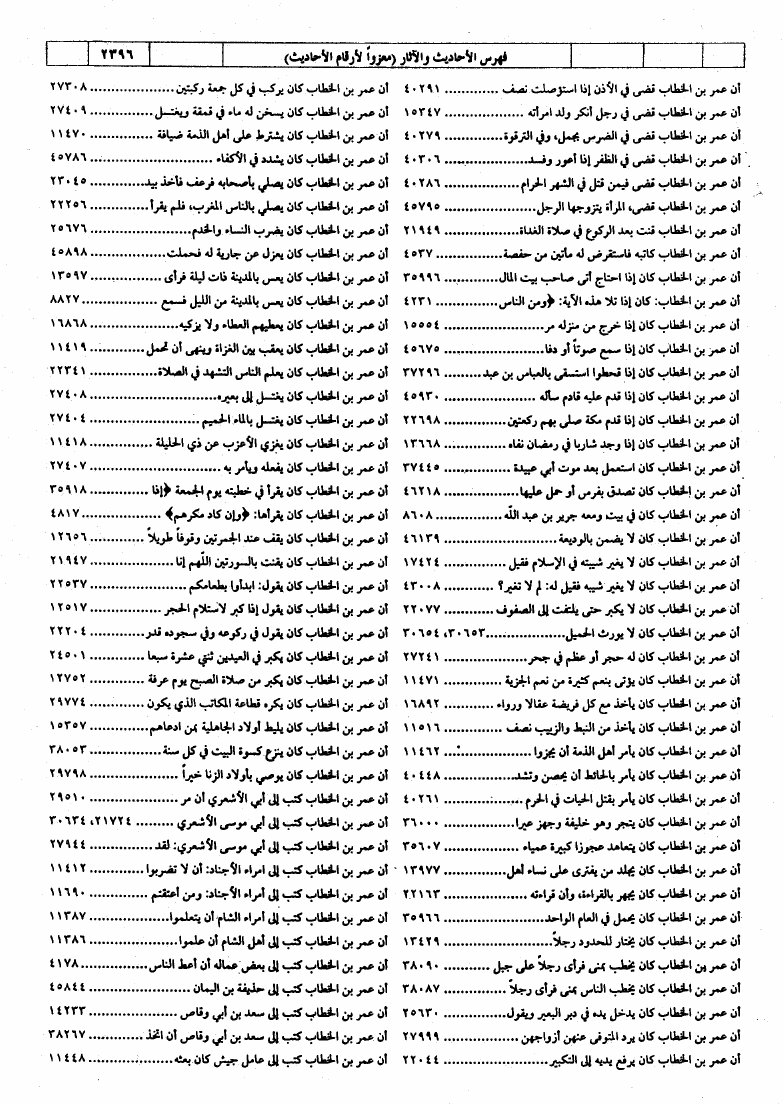 فهرس الأحاديث والآثار (معزواً لأرقام الأحاديث)
٢٣٩٦
أن عمر بن الخطاب قضى في الأذن إذا استؤصلت نصف ............. ٤٠٢٩١
أن عمر بن الخطاب قضى في رجل أنكر ولد امرأته ................... ١٥٣٤٧
أن عمر بن الخطاب قضى في الضرس بجمل، وفي الترقوة ............ ٤٠٢٧٩
أن عمر بن الخطاب قضى في الظفر إذا أعور وفسد .................. ٤٠٣٠٦
أن عمر بن الخطاب قضى فيمن قتل في الشهر الحرام ................ ٤٠٢٨٦
أن عمر بن الخطاب قضى، المرأة يتزوجها الرجل ..................... ٤٥٧٩٥
أن عمر بن الخطاب قنت بعد الركوع في صلاة الغداة ................ ٢١٩٤٩
أن عمر بن الخطاب كاتبه فاستقرض له مأتين من حفصة ............ ٤٥٣٧
أن عمر بن الخطاب كان إذا احتاج أتى صاحب بيت المال ........... ٣٥٩٩٦
أن عمر بن الخطاب: كان إذا تلا هذه الآية: ﴿ومن الناس ............ ٤٢٣١
أن عمر بن الخطاب كان إذا خرج من منزله مر ...................... ١٥٥٥٤
أن عمر بن الخطاب كان إذا سمع صوتاً أو دفا ...................... ٤٥٦٧٥
أن عمر بن الخطاب كان إذا قحطوا استسقى بالعباس بن عبد ......... ٣٧٢٩٦
أن عمر بن الخطاب كان إذا قدم عليه قادم سأله ..................... ٤٥٩٣٠
أن عمر بن الخطاب كان إذا قدم مكة صلى بهم ركعتين .............. ٢٢٦٩٨
أن عمر بن الخطاب كان إذا وجد شاربا في رمضان نفاه ............. ١٣٦٦٨
أن عمر بن الخطاب كان استعمل بعد موت أبي عبيدة ............... ٣٧٤٤٥
أن عمر بن الخطاب كان تصدق بفرس أو حمل عليها ................ ٤٦٢١٨
أن عمر بن الخطاب كان في بيت ومعه جرير بن عبد الله ............. ٨٦٠٨
أن عمر بن الخطاب كان لا يضمن بالوديعة ......................... ٤٦١٣٩
أن عمر بن الخطاب كان لا يغير شيبته في الإسلام فقيل .............. ١٧٤٢٤
أن عمر بن الخطاب كان لا يغير شيبه فقيل له: لم لا تغير؟ ........... ٤٣٠٠٨
أن عمر بن الخطاب كان لا يكبر حتى يلتفت إلى الصفوف ........... ٢٢٠٧٧
أن عمر بن الخطاب كان لا يورث الحميل ................ ٣٠٦٥٣، ٣٠٦٥٤
أن عمر بن الخطاب كان له حجر أو عظم في جحر .................. ٢٧٢٤١
أن عمر بن الخطاب كان يؤتى بنعم كثيرة من نعم الجزية ............. ١١٤٧١
أن عمر بن الخطاب كان يأخذ مع كل فريضة عقالا ورواء ........... ١٦٨٩٢
أن عمر بن الخطاب كان يأخذ من النبط والزبيب نصف ............. ١١٥١٦
أن عمر بن الخطاب كان يأمر أهل الذمة أن يجزوا ................... ١١٤٦٢
أن عمر بن الخطاب كان يأمر بالحائط أن يحصن وتشد .............. ٤٠٤٤٨
أن عمر بن الخطاب كان يأمر بقتل الحيات في الحرم ................. ٤٠٢٦١
أن عمر بن الخطاب كان يتجر وهو خليفة وجهز عيرا ............... ٣٦٠٠٠
أن عمر بن الخطاب كان يتعاهد عجوزا كبيرة عمياء ................ ٣٥٦٠٧
أن عمر بن الخطاب كان يجلد من يفترى على نساء أهل ............. ١٣٩٧٧
أن عمر بن الخطاب كان يجهر بالقراءة، وأن قراءته .................. ٢٢١٦٣
أن عمر بن الخطاب كان يحمل في العام الواحد ..................... ٣٥٩٦٦
أن عمر بن الخطاب كان يختار للحدود رجلاً ....................... ١٣٤٢٩
أن عمر بن الخطاب كان يخطب بمنى فرأى رجلاً على جبل .......... ٣٨٠٩٠
أن عمر بن الخطاب كان يخطب الناس بمنى فرأى رجلاً ............. ٣٨٠٨٧
أن عمر بن الخطاب كان يدخل يده في دبر البعير ويقول ............. ٢٥٦٣٠
أن عمر بن الخطاب كان يرد المتوفى عنهن أزواجهن ................. ٢٧٩٩٩
أن عمر بن الخطاب كان يرفع يديه إلى التكبير ...................... ٢٢٠٤٤
أن عمر بن الخطاب كان يركب في كل جمعة ركبتين ................ ٢٧٣٠٨
أن عمر بن الخطاب كان يسخن له ماء في قمقة ويغتسل ............. ٢٧٤٠٩
أن عمر بن الخطاب كان يشترط على أهل الذمة ضيافة .............. ١١٤٧٠
أن عمر بن الخطاب كان يشدد في الأكفاء .......................... ٤٥٧٨٦
أن عمر بن الخطاب كان يصلي بأصحابه فرعف فأخذ بيد ........... ٢٣٠٤٥
أن عمر بن الخطاب كان يصلي بالناس المغرب، فلم يقرأ ............ ٢٢٢٥٦
أن عمر بن الخطاب كان يضرب النساء والخدم ...................... ٢٥٦٧٦
أن عمر بن الخطاب كان يعزل عن جارية له فحملت ................ ٤٥٨٩٨
أن عمر بن الخطاب كان يعس بالمدينة ذات ليلة فرأى ............... ١٣٥٩٧
أن عمر بن الخطاب كان يعس بالمدينة من الليل فسمع ............... ٨٨٢٧
أن عمر بن الخطاب كان يعطيهم العطاء ولا يزكيه .................. ١٦٨٦٨
أن عمر بن الخطاب كان يعقب بين الغزاة وينهى أن تحمل ........... ١١٤١٩
أن عمر بن الخطاب كان يعلم الناس التشهد في الصلاة .............. ٢٢٣٤١
أن عمر بن الخطاب كان يغتسل إلى بعيره .......................... ٢٧٤٠٨
أن عمر بن الخطاب كان يغتسل بالماء الحميم ....................... ٢٧٤٠٤
أن عمر بن الخطاب كان يغزي الأعزب عن ذي الحليلة .............. ١١٤١٨
أن عمر بن الخطاب كان يفعله ويأمر به ............................ ٢٧٤٠٧
أن عمر بن الخطاب كان يقرأ في خطبته يوم الجمعة ﴿إذا ............ ٣٥٩١٨
أن عمر بن الخطاب كان يقرأها: ﴿وإن كاد مكرهم﴾ ............... ٤٨١٧
أن عمر بن الخطاب كان يقف عند الجمرتين وقوفاً طويلاً ............ ١٢٦٥٦
أن عمر بن الخطاب كان يقنت بالسورتين اللهم إنا .................. ٢١٩٤٧
أن عمر بن الخطاب كان يقول: ابدأوا بطعامكم ..................... ٢٢٥٣٧
أن عمر بن الخطاب كان يقول إذا كبر لاستلام الحجر ............... ١٢٥١٧
أن عمر بن الخطاب كان يقول في ركوعه وفي سجوده قدر .......... ٢٢٢٠٤
أن عمر بن الخطاب كان يكبر في العيدين ثنتي عشرة سبعا ........... ٢٤٥٠١
أن عمر بن الخطاب كان يكبر من صلاة الصبح يوم عرفة ............ ١٢٧٥٢
أن عمر بن الخطاب كان يكره قطاعة المكاتب الذي يكون ........... ٢٩٧٧٤
أن عمر بن الخطاب كان يليط أولاد الجاهلية بمن ادعاهم ............ ١٥٣٥٧
أن عمر بن الخطاب كان ينزع كسوة البيت في كل سنة ............. ٣٨٠٥٣
أن عمر بن الخطاب كان يوصي بأولاد الزنا خيراً ................... ٢٩٧٩٨
أن عمر بن الخطاب كتب إلى أبي الأشعري أن مر ................... ٢٩٥١٠
أن عمر بن الخطاب كتب إلى أبي موسى الأشعري ......... ٢١٧٢٤، ٣٠٦٣٤
أن عمر بن الخطاب كتب إلى أبي موسى الأشعري: لقد .............. ٢٧٩٤٤
أن عمر بن الخطاب كتب إلى امراء الأجناد: أن لا تضربوا ........... ١١٤١٢
أن عمر بن الخطاب كتب إلى أمراء الأجناد: ومن أعتقتم ............. ١١٦٩٠
أن عمر بن الخطاب كتب إلى أمراء الشام أن يتعلموا ................. ١١٣٨٧
أن عمر بن الخطاب كتب إلى أهل الشام أن علموا ................... ١١٣٨٦
أن عمر بن الخطاب كتب إلى بعض عماله أن أعط الناس ............. ٤١٧٨
أن عمر بن الخطاب كتب إلى حذيفة بن اليمان ...................... ٤٥٨٤٤
أن عمر بن الخطاب كتب إلى سعد بن أبي وقاص .................... ١٤٢٣٣
أن عمر بن الخطاب كتب إلى سعد بن أبي وقاص أن اتخذ ............ ٣٨٢٦٧
أن عمر بن الخطاب كتب إلى عامل جيش كان بعثه .................. ١١٤٤٨